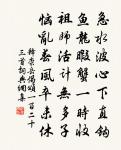 急水波心下直鈎
魚龍蝦蟹一時收
祖師活計無多子
惱亂春風卒未休
釋崇岳偈頌一百二十
三首詞典網集